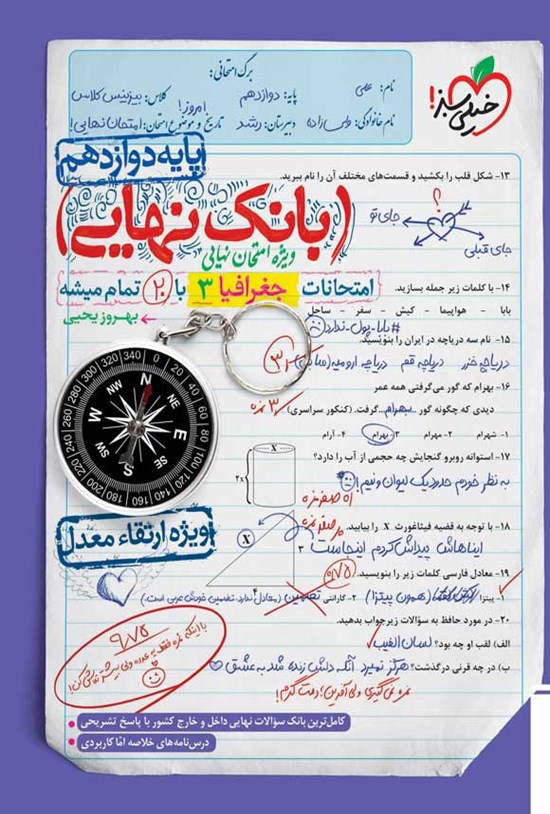 برگ امتحانی:
نام: علی
پایه: دوازدهم
کلاس: بیزینس کلاس
امروز!
نام خانوادگی: ولی‌زاده
دبیرستان: رشد
تاریخ و موضوع امتحان: امتحان نهایی!
خیلی سبز!
پایه دوازدهم
۱۳- شکل قلب را بکشید و قسمت‌های مختلف آن را نام ببرید.
(بانک نهایی)
ویژه امتحان نهایی
؟
جای تو
جای قبلی
امتحانات جغرافیا ۳ با ۲۰ تمام میشه
بهروز یحیی
۱۴- با کلمات زیر جمله بسازید.
بابا - هواپیما - کیش - سفر - ساحل
#بابا-پول-ندارد
۱۵- نام سه دریاچه در ایران را بنویسید.
دریاچه خزر دریاچه قم دریاچه ارومیه
۱۶- بهرام که گور می‌گرفتی همه عمر
دیدی که چگونه گور بهرام گرفت. (کنکور سراسری)
۱- شهرام ۲- مهرام ۳- بهرام ۴- آرام
۱۷- استوانه روبرو گنجایش چه حجمی از آب را دارد؟
به نظر خودم حدود یک لیوان و نیم!
X
2x
۱۸- با توجه به قضیه فیثاغورت X را بیابید.
ایناهاش پیداش کردم اینجاست
X
۳
۴
ویژه ارتقاء معدل
۱۹- معادل فارسی کلمات زیر را بنویسید.
۰/۷۵
۱- پیتزا (همون پیتزا) ۲- گارانتی تضمین (معادل ندارد. تضمین خودش عربی است.)
۲۰- در مورد حافظ به سؤالات زیر جواب بدهید.
الف) لقب او چه بود؟ لسان الغیب
ب) در چه قرنی درگذشت؟ هرگز نمیرد آنکه دلش زنده شد به عشق
نمره نمی‌گیری ولی آفرین! دمت گرم!
۹/۷۵
کامل‌ترین بانک سؤالات نهایی داخل و خارج کشور با پاسخ تشریحی
درس‌نامه‌های خلاصه امّا کاربردی
N
NE
E
SE
S
SW
W
NW
0 20 40 60 80 100 120 140 160 180 200 220 240 260 280 300 320 340